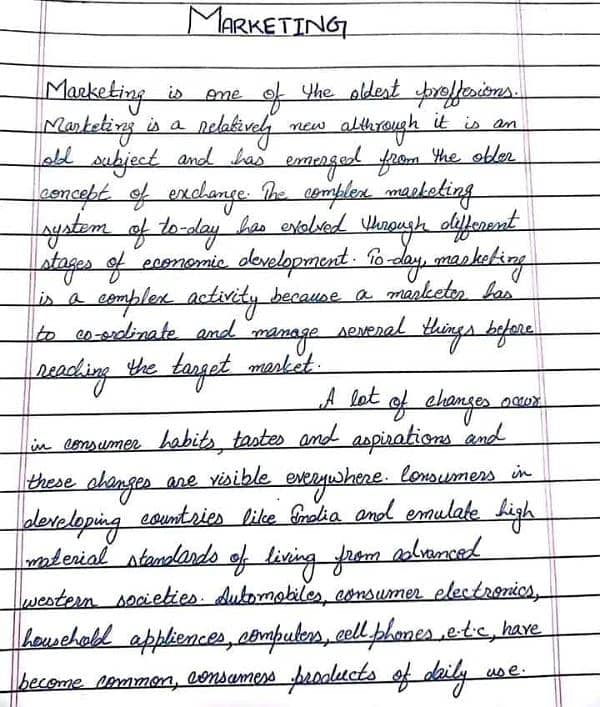 MARKETING
Marketing is one of the oldest proffesions.
Marketing is a relatively new althrough it is an
old subject and has emerged from the older
concept of exchange. The complex marketing
system of to-day has evolved through different
stages of economic development. To-day, marketing
is a complex activity because a marketer has
to co-ordinate and manage several things before
reaching the target market.
A lot of changes occur
in consumer habits, tastes and aspirations and
these changes are visible everywhere. Consumers in
developing countries like India and emulate high
material standards of living from advanced
western societies. Automobiles, consumer electronics,
household appliences, computers, cell phones, e.t.c, have
become common, consumers products of daily use.